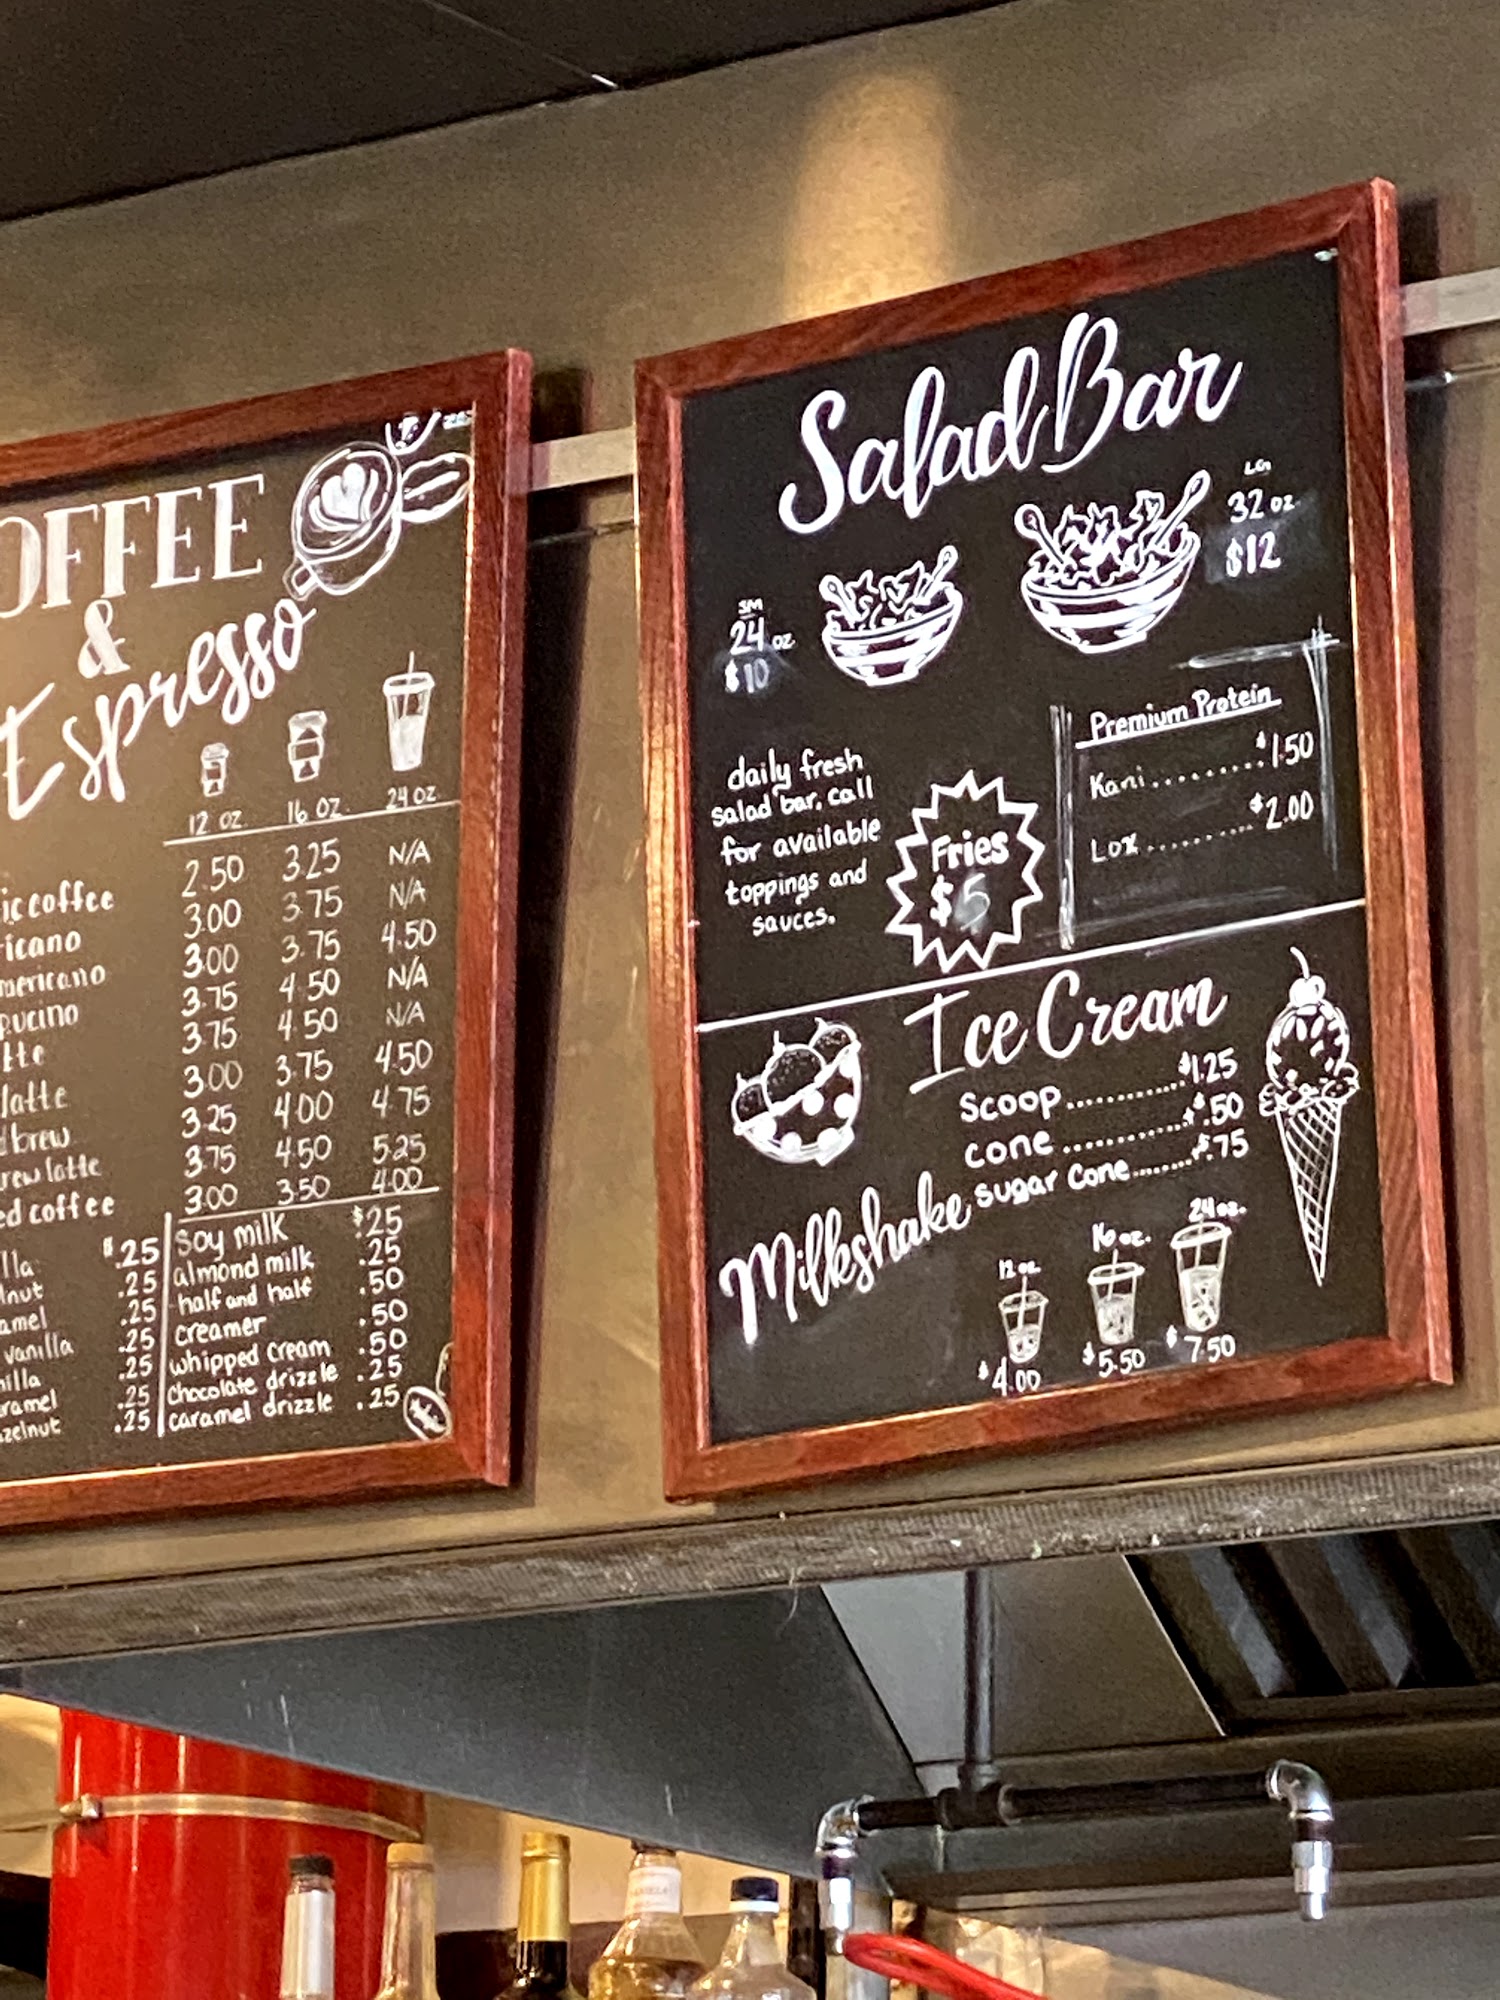 OFFEE
&
Espresso
12 OZ. 16 OZ. 24 OZ.
ic coffee 2.50 3.25 N/A
ricano 3.00 3.75 N/A
mericano 3.00 3.75 4.50
pucino 3.75 4.50 N/A
tte 3.75 4.50 N/A
latte 3.00 3.75 4.50
d brew 3.25 4.00 4.75
rew latte 3.75 4.50 5.25
ed coffee 3.00 3.50 4.00
lla $.25
lnut .25
amel .25
vanilla .25
nilla .25
ramel .25
zelnut .25
soy milk $.25
almond milk .25
half and half .50
creamer .50
whipped cream .50
chocolate drizzle .25
caramel drizzle .25
Salad Bar
SM
24 oz
$10
LG
32 oz.
$12
daily fresh
salad bar, call
for available
toppings and
sauces.
Fries
$5
Premium Protein
Kani.......... $1.50
Lox.......... $2.00
Ice Cream
Scoop............ $1.25
cone............ $.50
sugar cone........ $.75
Milkshake
12 oz. 16 oz. 24 oz.
$4.00 $5.50 $7.50